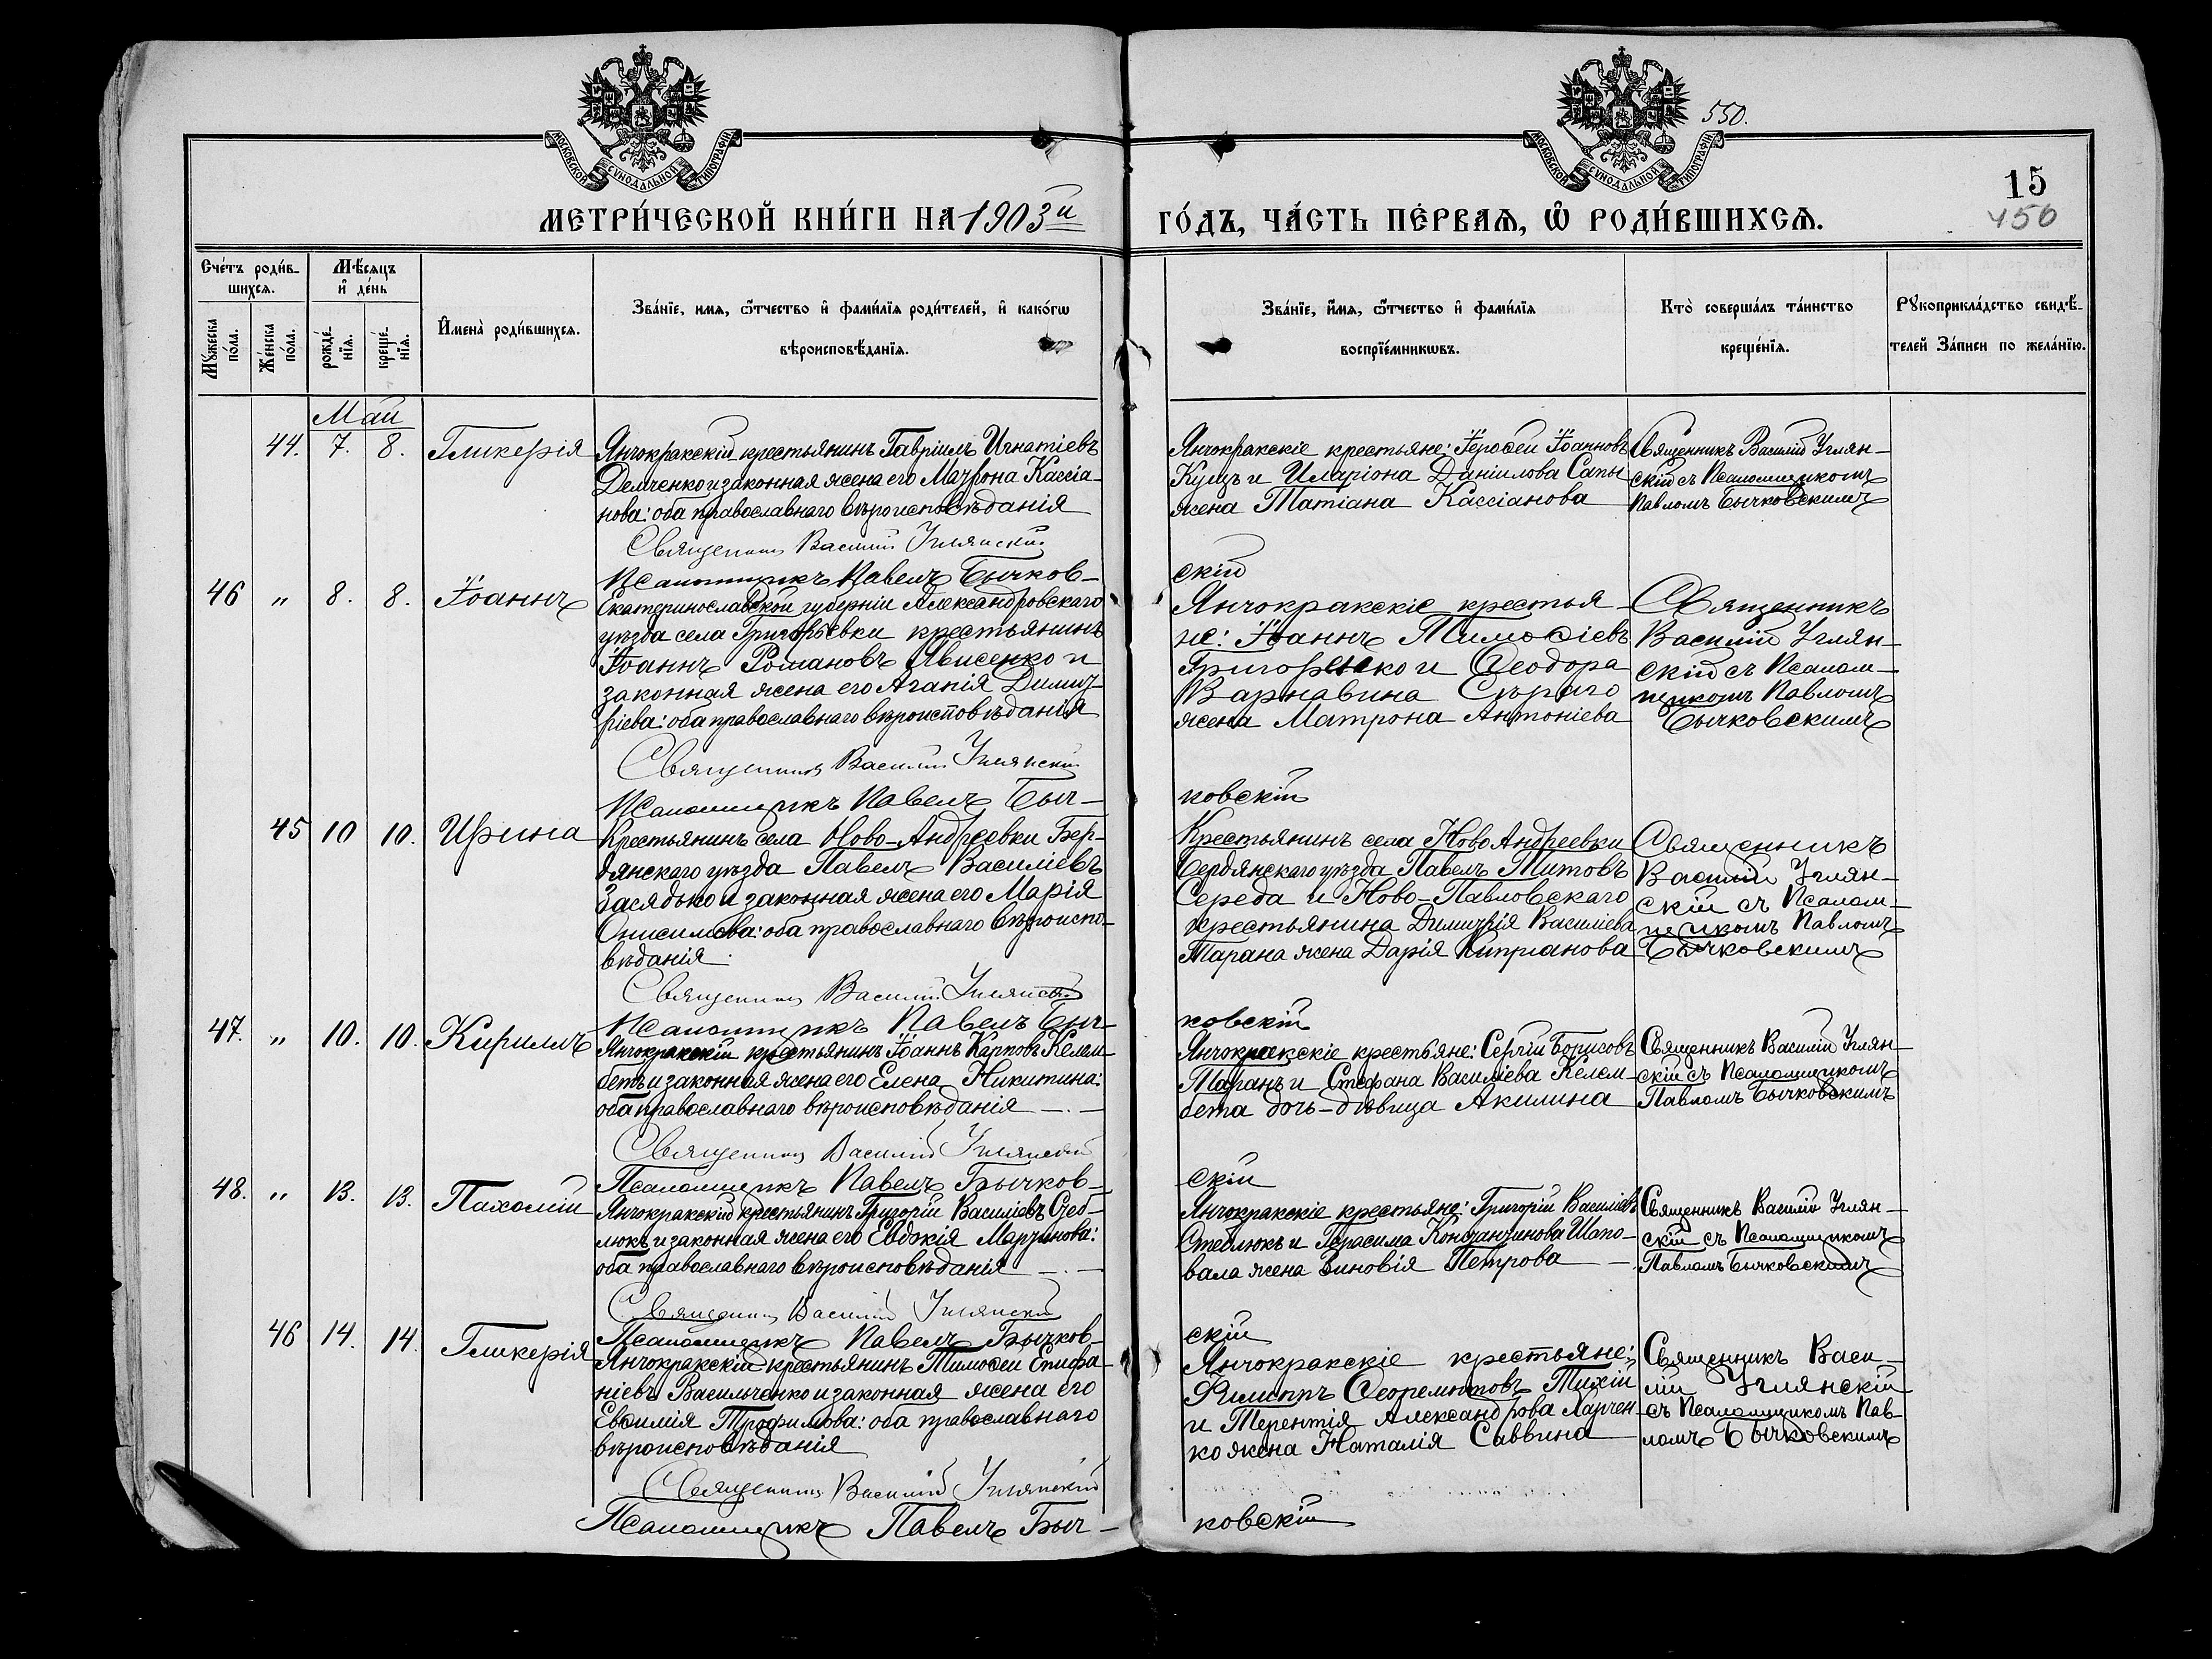 550.
МОСКОВСКОЙ СѴНОДАЛЬНОЙ ТИПОГРАФІИ
МОСКОВСКОЙ СѴНОДАЛЬНОЙ ТИПОГРАФІИ
15
450
МЕТРИ́ЧЕСКОЙ КНИ́ГИ НА 1903й
ГО́ДЪ, ЧА́СТЬ ПЕ́РВАѦ, Ѡ҆ РОДИ́ВШИХСѦ.
Сче́тъ роди́в-
шихсѧ.
Мꙋ́жеска по́ла.
Же́нска по́ла.
Мѣ́сѧцъ
и҆ де́нь
рожде́-
нїѧ.
креще́-
нїѧ.
И҆мена̀ роди́вшихсѧ.
Зва́нїе, имѧ, ѻ҆́тчество и҆ фами́лїѧ роди́телей, и҆ како́гѡ
вѣроисповѣ́данїѧ.
Зва́нїе, и҆́мѧ, ѻ҆́тчество и҆ фами́лїѧ
воспрїе́мникѡвъ.
Кто̀ соверша́лъ та́инство
креще́нїѧ.
Рꙋкоприкла́дство свидѣ́-
телей За́писи по жела́нїю.
Май
44. 7. 8. Гликерія
Янчокракскій крестьянинъ Гавріилъ Игнатіевъ
Демченко и законная жена его Матрона Кассіа-
нова: оба православнаго вѣроисповѣданія
Священникъ Василій Углянскій
Псаломщикъ Павелъ Бычков-
скій
Янчокракскіе крестьяне: Іероѳей Іоанновъ
Куцъ и Иларіона Даніилова Сапы
жена Татіана Кассіанова
Священникъ Василій Углян-
скій съ Псаломщикомъ
Павломъ Бычковскимъ
46 " 8. 8. Іоаннъ
Екатеринославской губерніи Александровскаго
уѣзда села Григорьевки крестьянинъ
Іоаннъ Романовъ Явисенко и
законная жена его Агапія Димит-
ріева: оба православнаго вѣроисповѣданія
Священникъ Василій Углянскій
Псаломщикъ Павелъ Быч-
ковскій
Янчокракскіе крестья-
не: Іоаннъ Тимоѳіевъ
Григоренко и Ѳеодора
Варнавина Сѣраго
жена Матрона Антоніева
Священникъ
Василій Углян-
скій съ Псалом-
щикомъ Павломъ
Бычковскимъ
45 10 10. Ирина
Крестьянинъ села Ново-Андреевки Бер-
дянскаго уѣзда Павелъ Василіевъ
Засядько и законная жена его Марія
Онисимова: оба православнаго вѣроиспо-
вѣданія.
Священникъ Василій Углянскій
Псаломщикъ Павелъ Быч-
ковскій
Крестьянинъ села Ново Андреевки
Бердянскаго уѣзда Павелъ Титовъ
Середа и Ново-Павловскаго
крестьянина Димитрія Василіева
Тарана жена Дарія Кипріанова
Священникъ
Василій Углян-
скій съ Псалом-
щикомъ Павломъ
Бычковскимъ
47. " 10. 10. Кириллъ
Янчокракскій крестьянинъ Іоаннъ Карповъ Келем-
бетъ и законная жена его Елена Никитина:
оба православнаго вѣроисповѣданія —.—
Священникъ Василій Углянскій
Псаломщикъ Павелъ Бычков-
скій
Янчокракскіе крестьяне: Сергій Борисовъ
Таранъ и Стефана Василіева Келем-
бета дочь-дѣвица Акилина
Священникъ Василій Углян-
скій съ Псаломщикомъ
Павломъ Бычковскимъ
48. " 13. 13. Пахомій
Янчокракскій крестьянинъ Григорій Василіевъ Стеб-
люкъ и законная жена его Евдокія Мартинова:
оба православнаго вѣроисповѣданія —.—
Священникъ Василій Углянскій
Псаломщикъ Павелъ Бычков-
скій
Янчокракскіе крестьяне: Григорій Василіевъ
Стеблюкъ и Герасима Константинова Шапо-
вала жена Зиновія Петрова —.
Священникъ Василій Углян-
скій съ Псаломщикомъ
Павломъ Бычковскимъ
46 14. 14. Гликерія
Янчокракскій крестьянинъ Тимоѳей Епифа-
ніевъ Васильченко и законная жена его
Евѳимія Трофимова: оба православнаго
вѣроисповѣданія
Священникъ Василій Углянскій
Псаломщикъ Павелъ Быч-
ковскій
Янчокракскіе крестьяне:
Филиппъ Тихій
и Терентія Александрова Харчен-
ко жена Наталія Саввина
Священникъ Васи-
лій Углянскій
съ Псаломщикомъ Пав-
ломъ Бычковскимъ